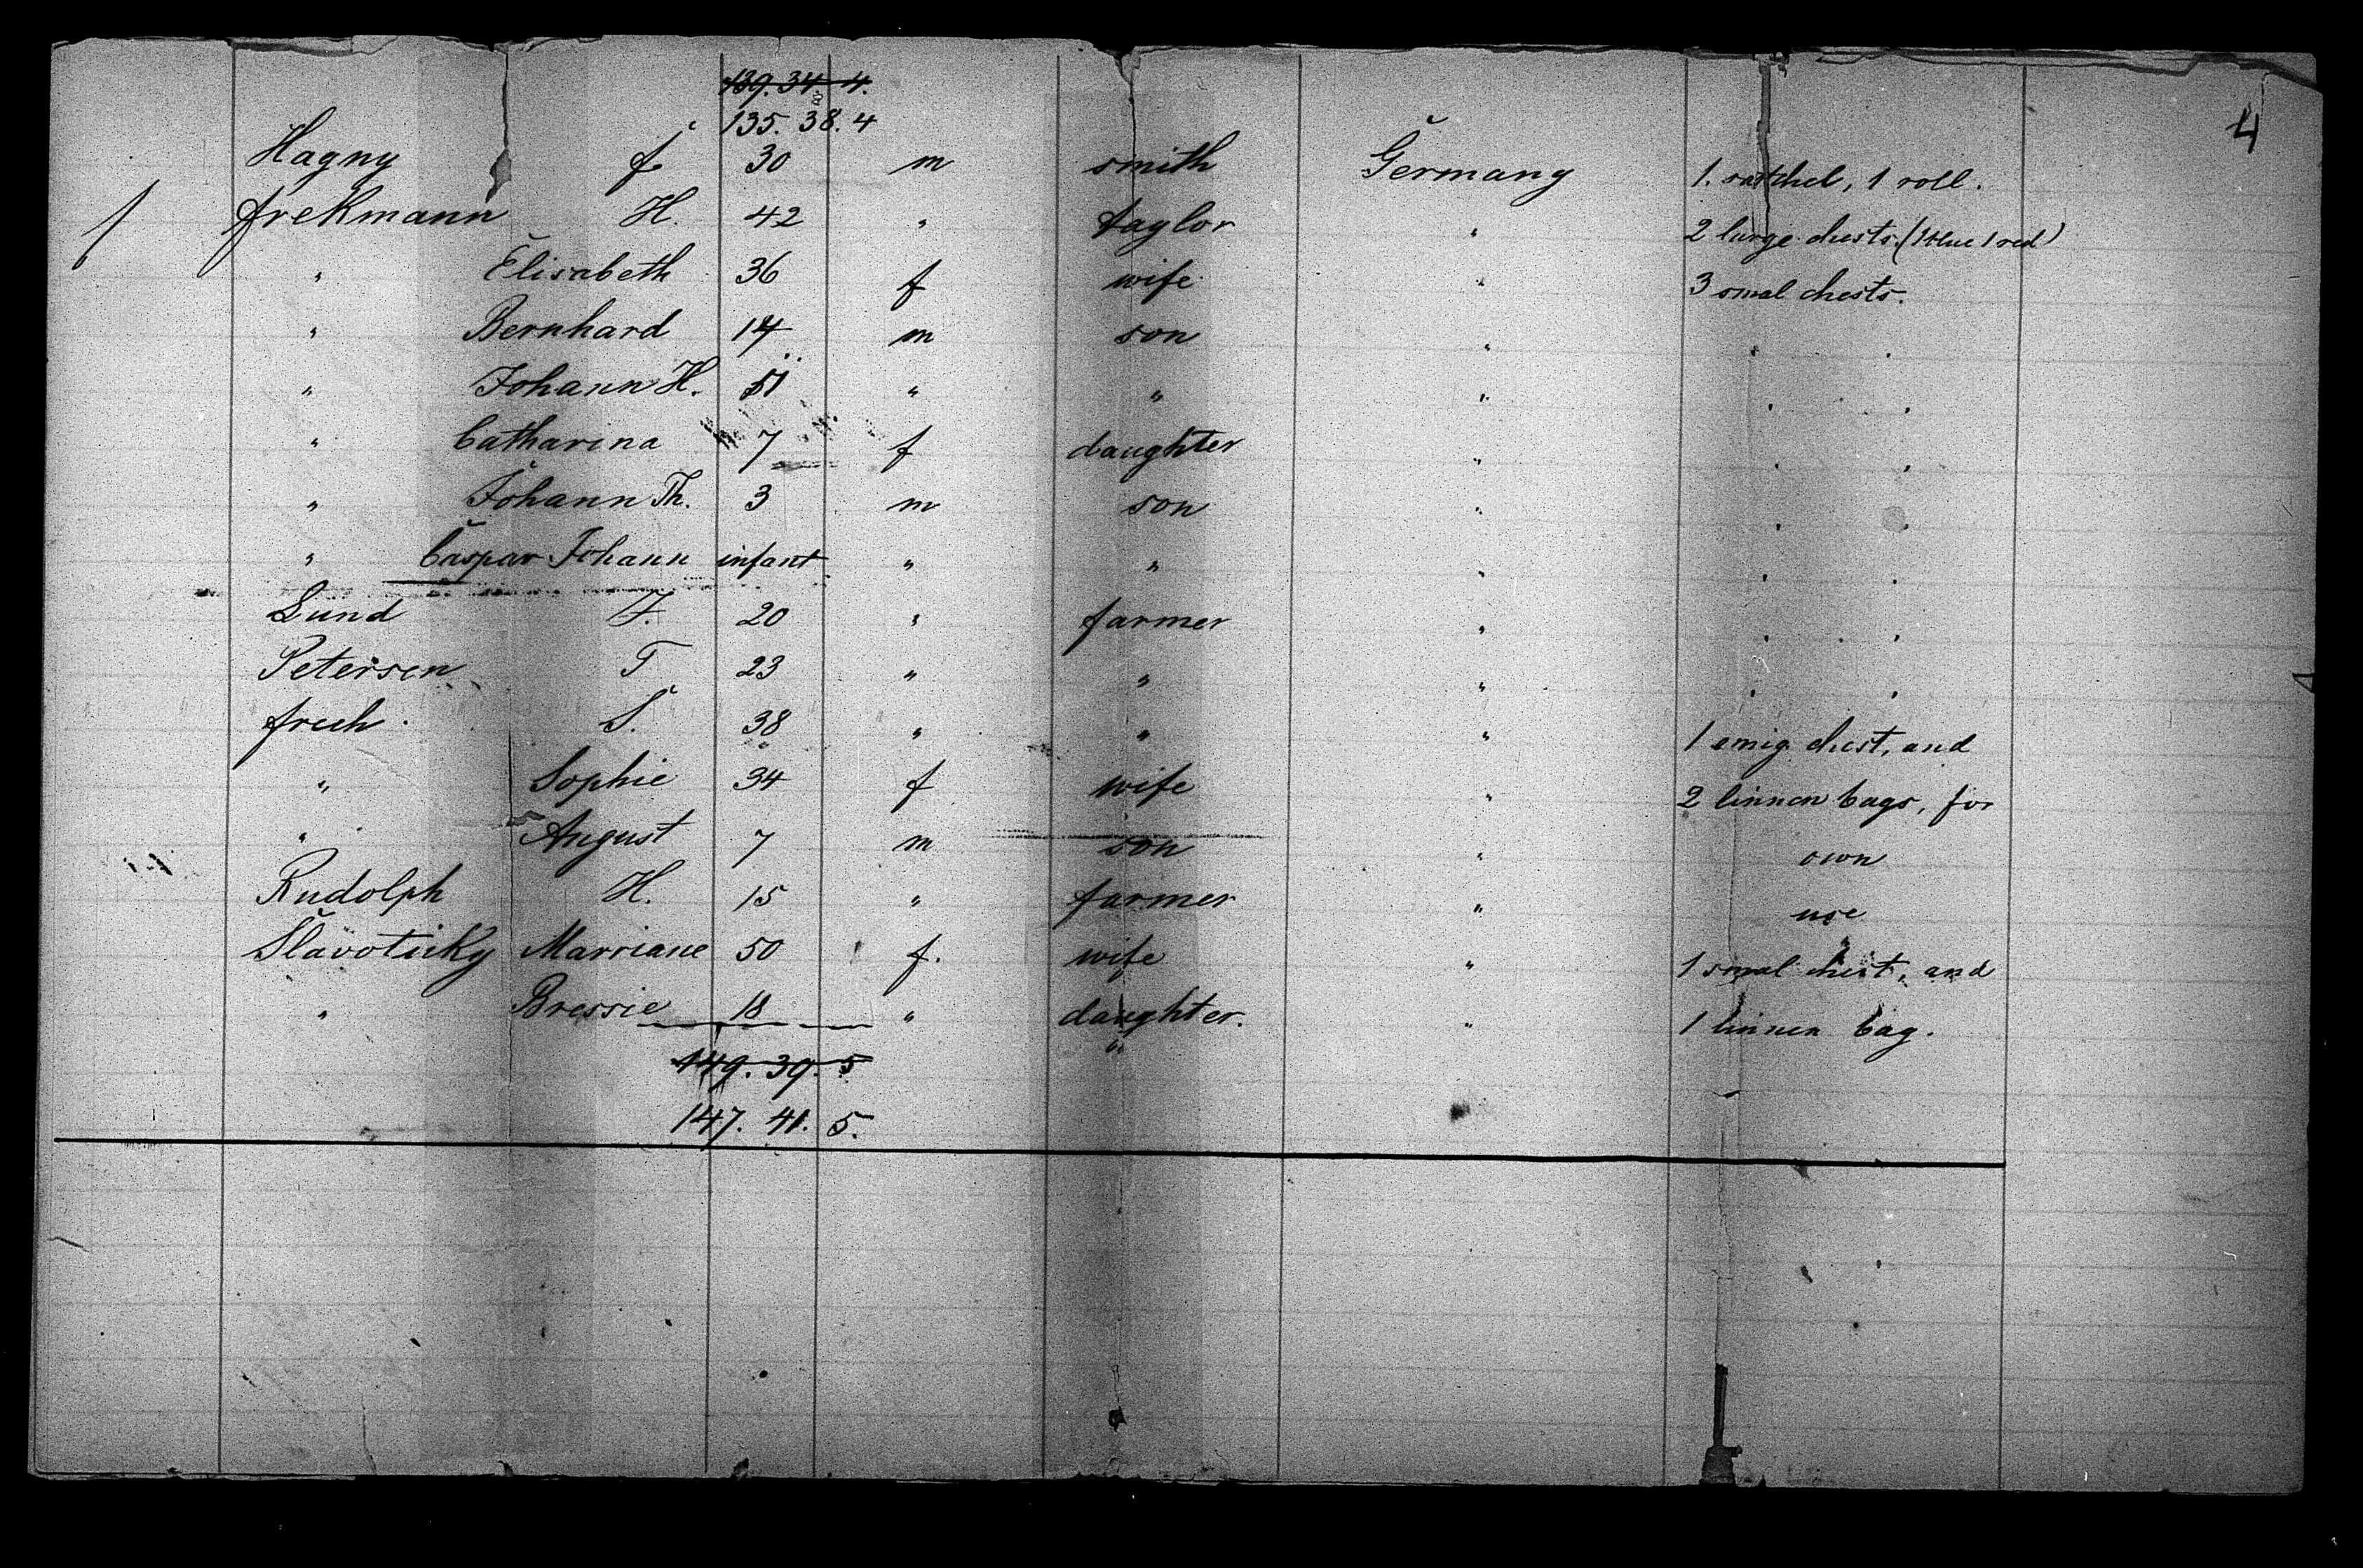 139. 34. 4.
135. 38. 4
4
Hagny f. 30 m smith Germany 1. satchel, 1 roll.
frekmann H. 42 " taylor " 2 large chests. (1 blue 1 red)
" Elisabeth 36 f wife " 3 smal chests.
" Bernhard 14 m son " " "
" Johann H. " " " " "
" Catharina 7 f daughter " " "
" Johann Th. 3 m son " " "
" Caspar Johann infant " " " " "
Lund 20 " farmer " " "
Petersen T 23 " " " " "
frech S. 38 " " " 1 emig. chest, and
" Sophie 34 f wife " 2 linnen bags, for
" August 7 m son " own
Rudolph H. 15 " farmer " use
Marriane 50 f. wife " 1 smal chest, and
" Bressie 18 " daughter. " 1 linnen bag.
149. 39. 5
147. 41. 5.